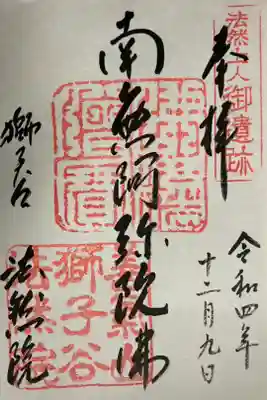 法然上人御遺跡
奉拝
令和四年
十二月九日
南無阿弥陀佛
善氣山
獅子谷
法然院
獅子谷
法然院